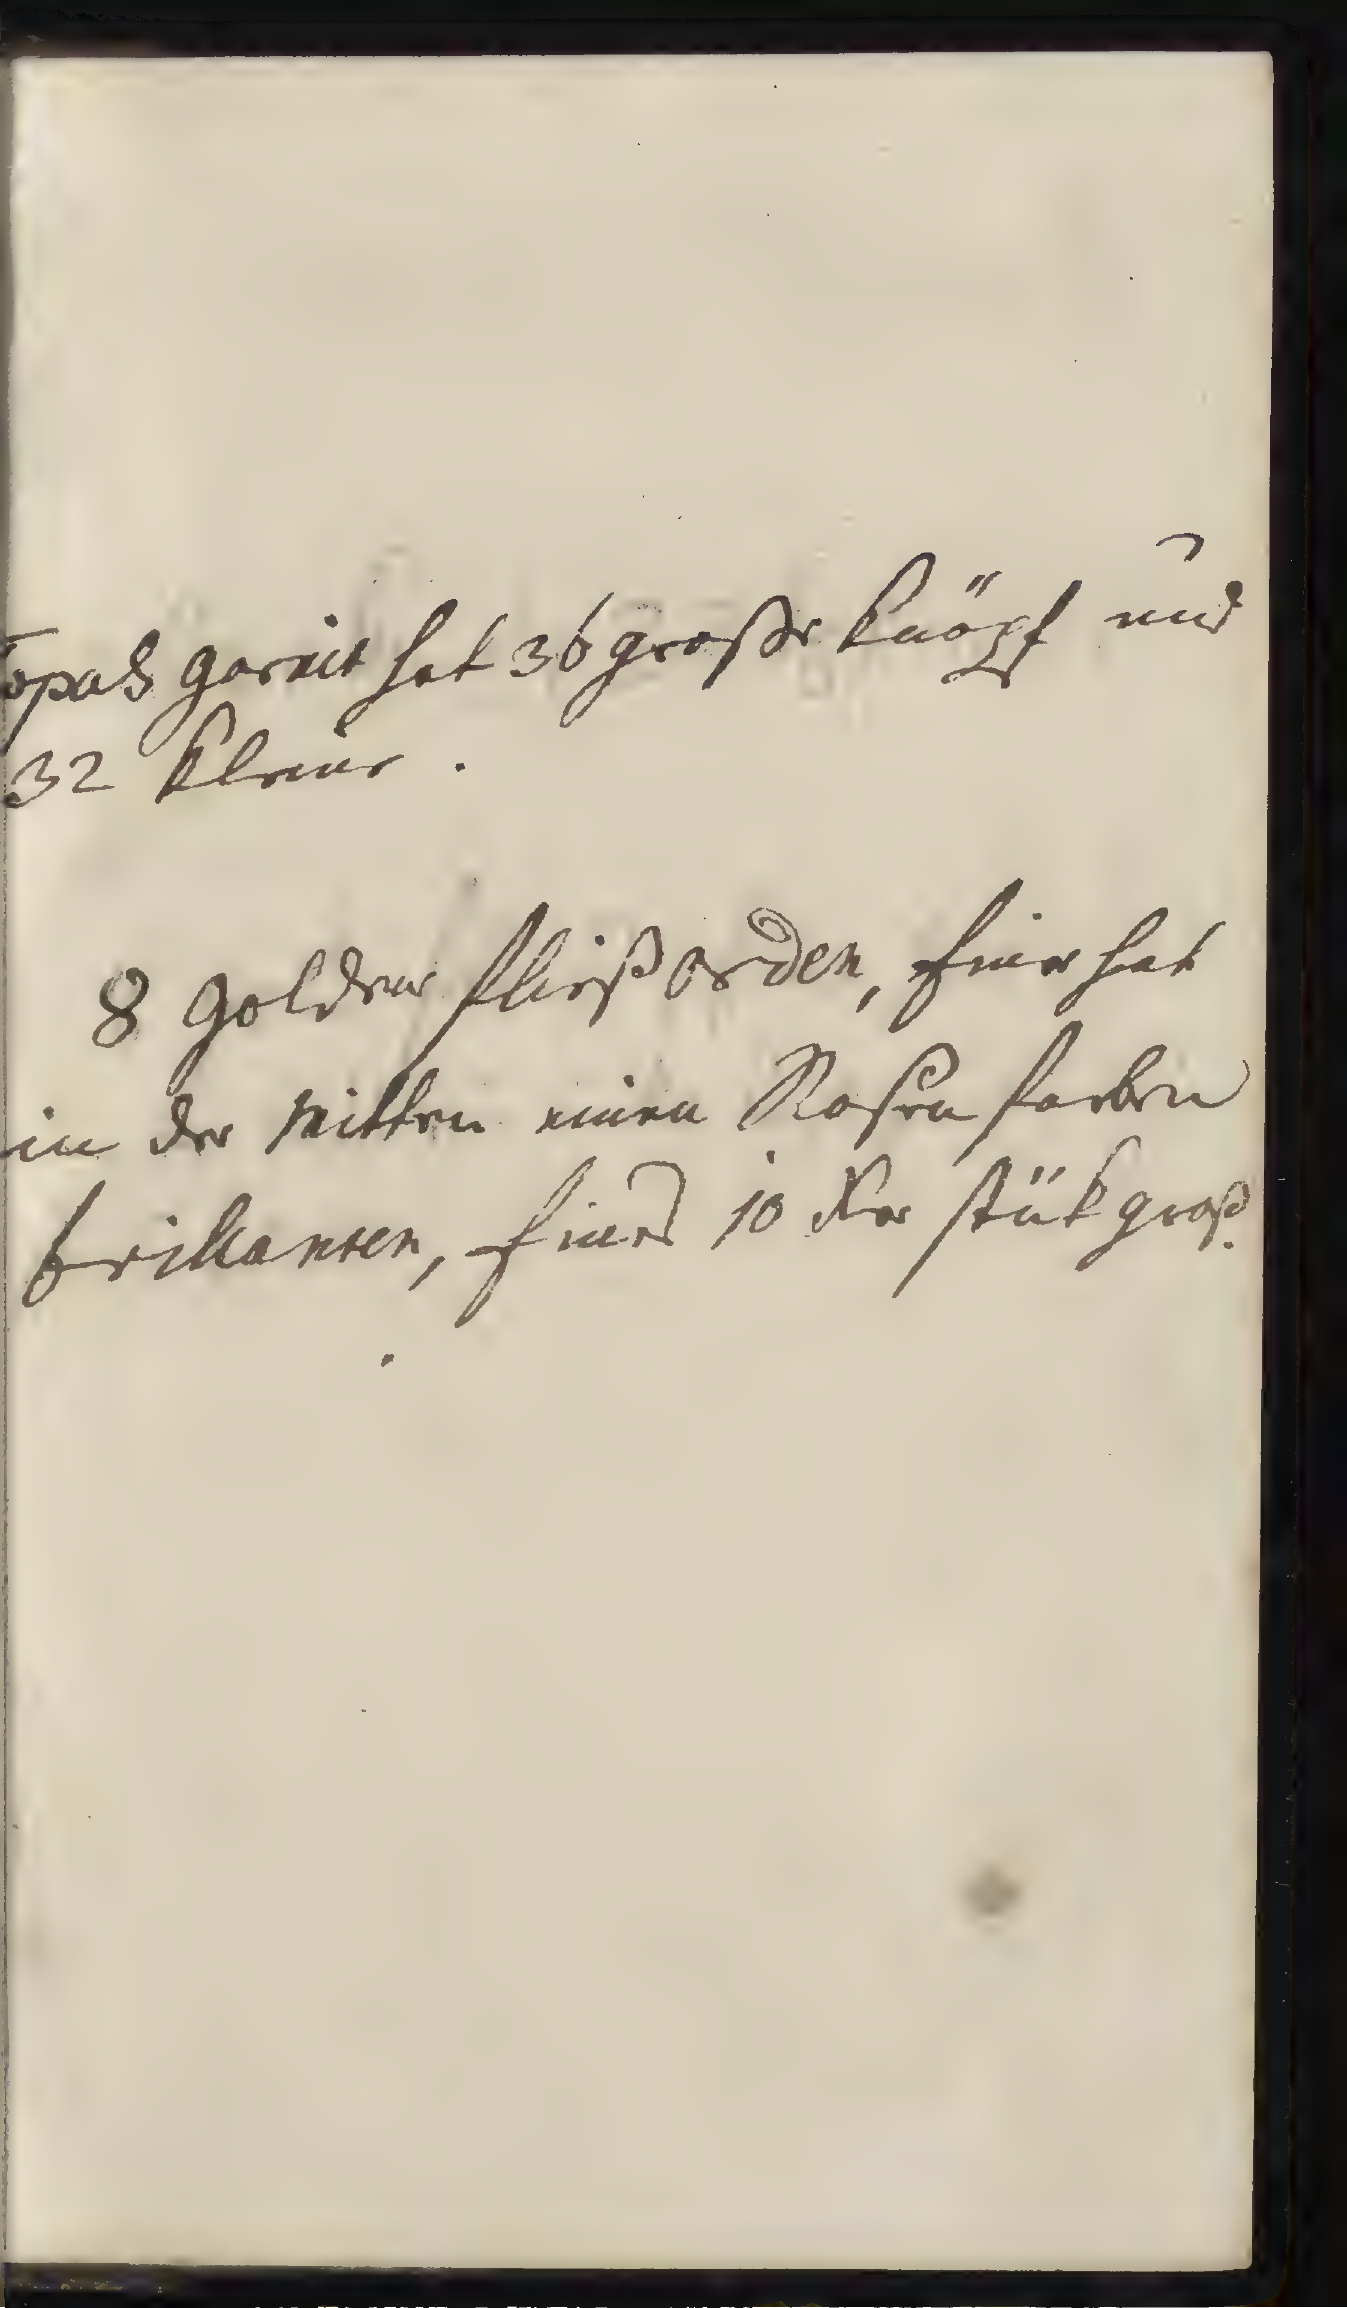 Topas garnit hat 36 große knöpf und
32 kleine.
8 goldene fließ orden, Einer hat
in der mitten einen Rosen farben
brillanten, Eines 10 Xer stük groß.